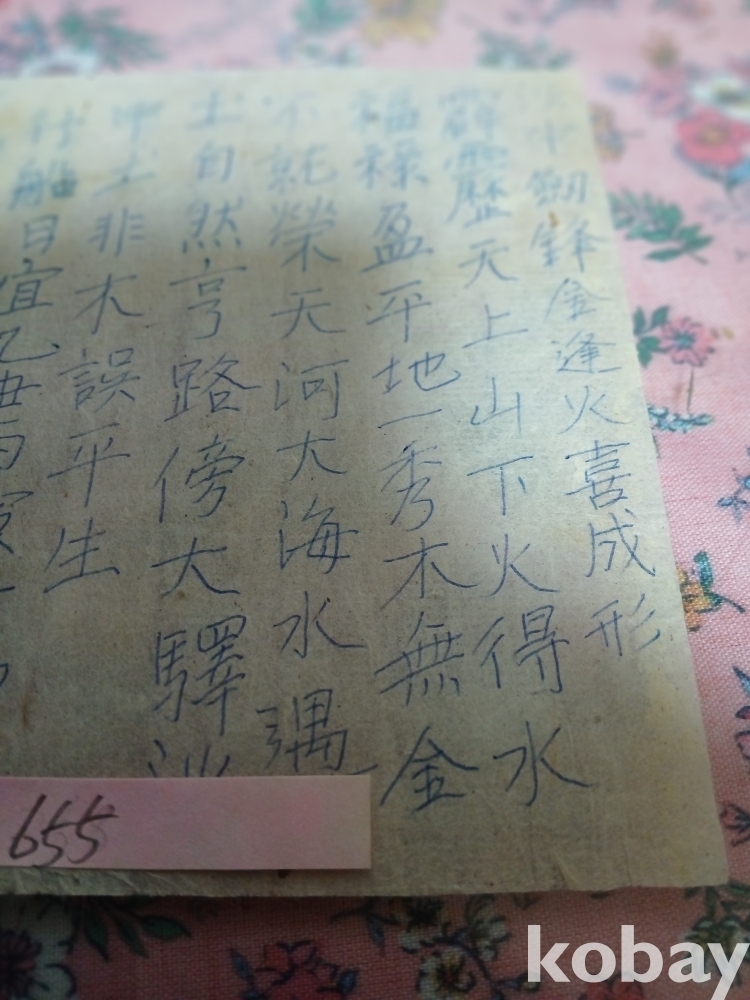 中劒鋒金逢火喜成形
霹靂天上山下火得水
福祿盈平地一秀木無金
不就榮天河大海水遇
土自然亨路傍大驛
中土非木誤平生
船目宜乙毋丙寅
655
kobay